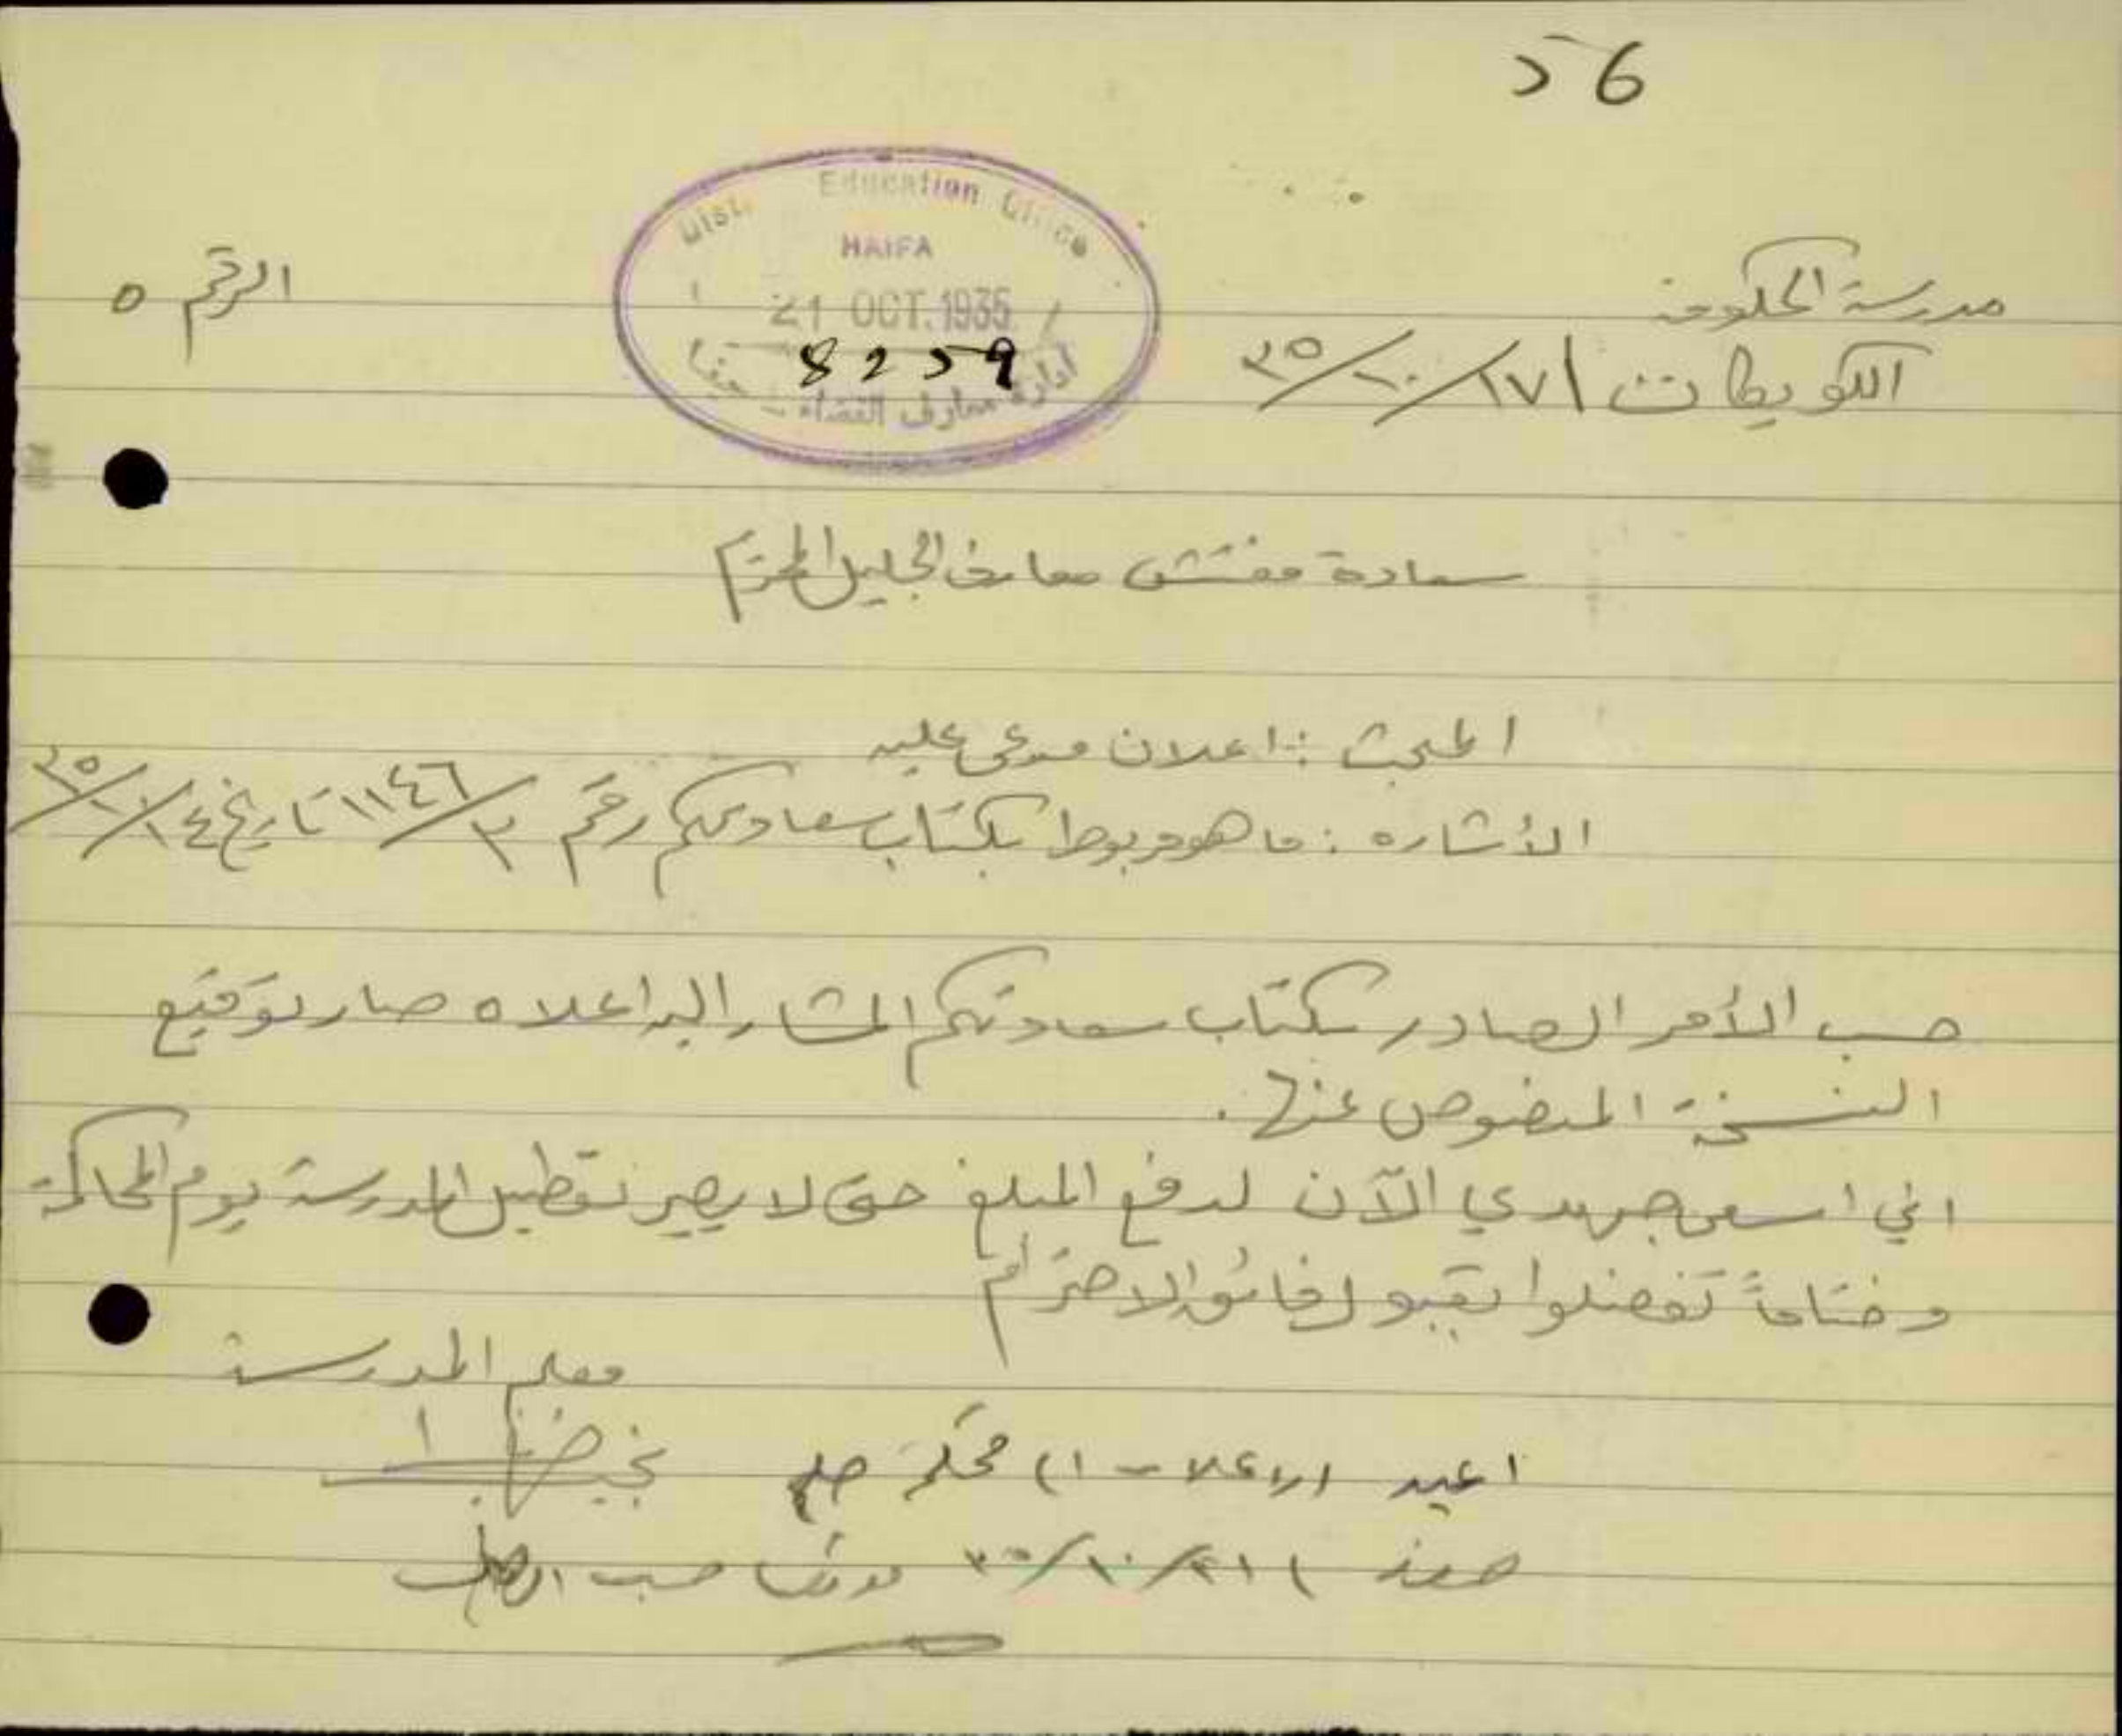 56
Dist. Education Office
HAIFA
21 OCT. 1935
8259
ادارة معارف القضاء - حيفا
الرقم ٥
مدرسة الحكومة
الكويكات ١٧/١٠/٣٥
سعادة مفتش معارف الجليل المحترم
المبحث : اعلان مدعى عليه
الأشاره : ما هو مربوط بكتاب سعادتكم رقم ٣/١١٤٦ تاريخ ١٤/١٠/٣٥
حسب الأمر الصادر بكتاب سعادتكم المشار اليه اعلاه صار توقيع
النسخة المنصوص عنها .
اني اسعى جهدي الآن لدفع المبلغ حتى لا يصير تعطيل المدرسة يوم المحاكمة
وختاماً تفضلوا بقبول فائق الاحترام
معلم المدرسة
اعيد الاعلان الى محكمة صلح
صفد ٢١/١٠/٣٥ حسب